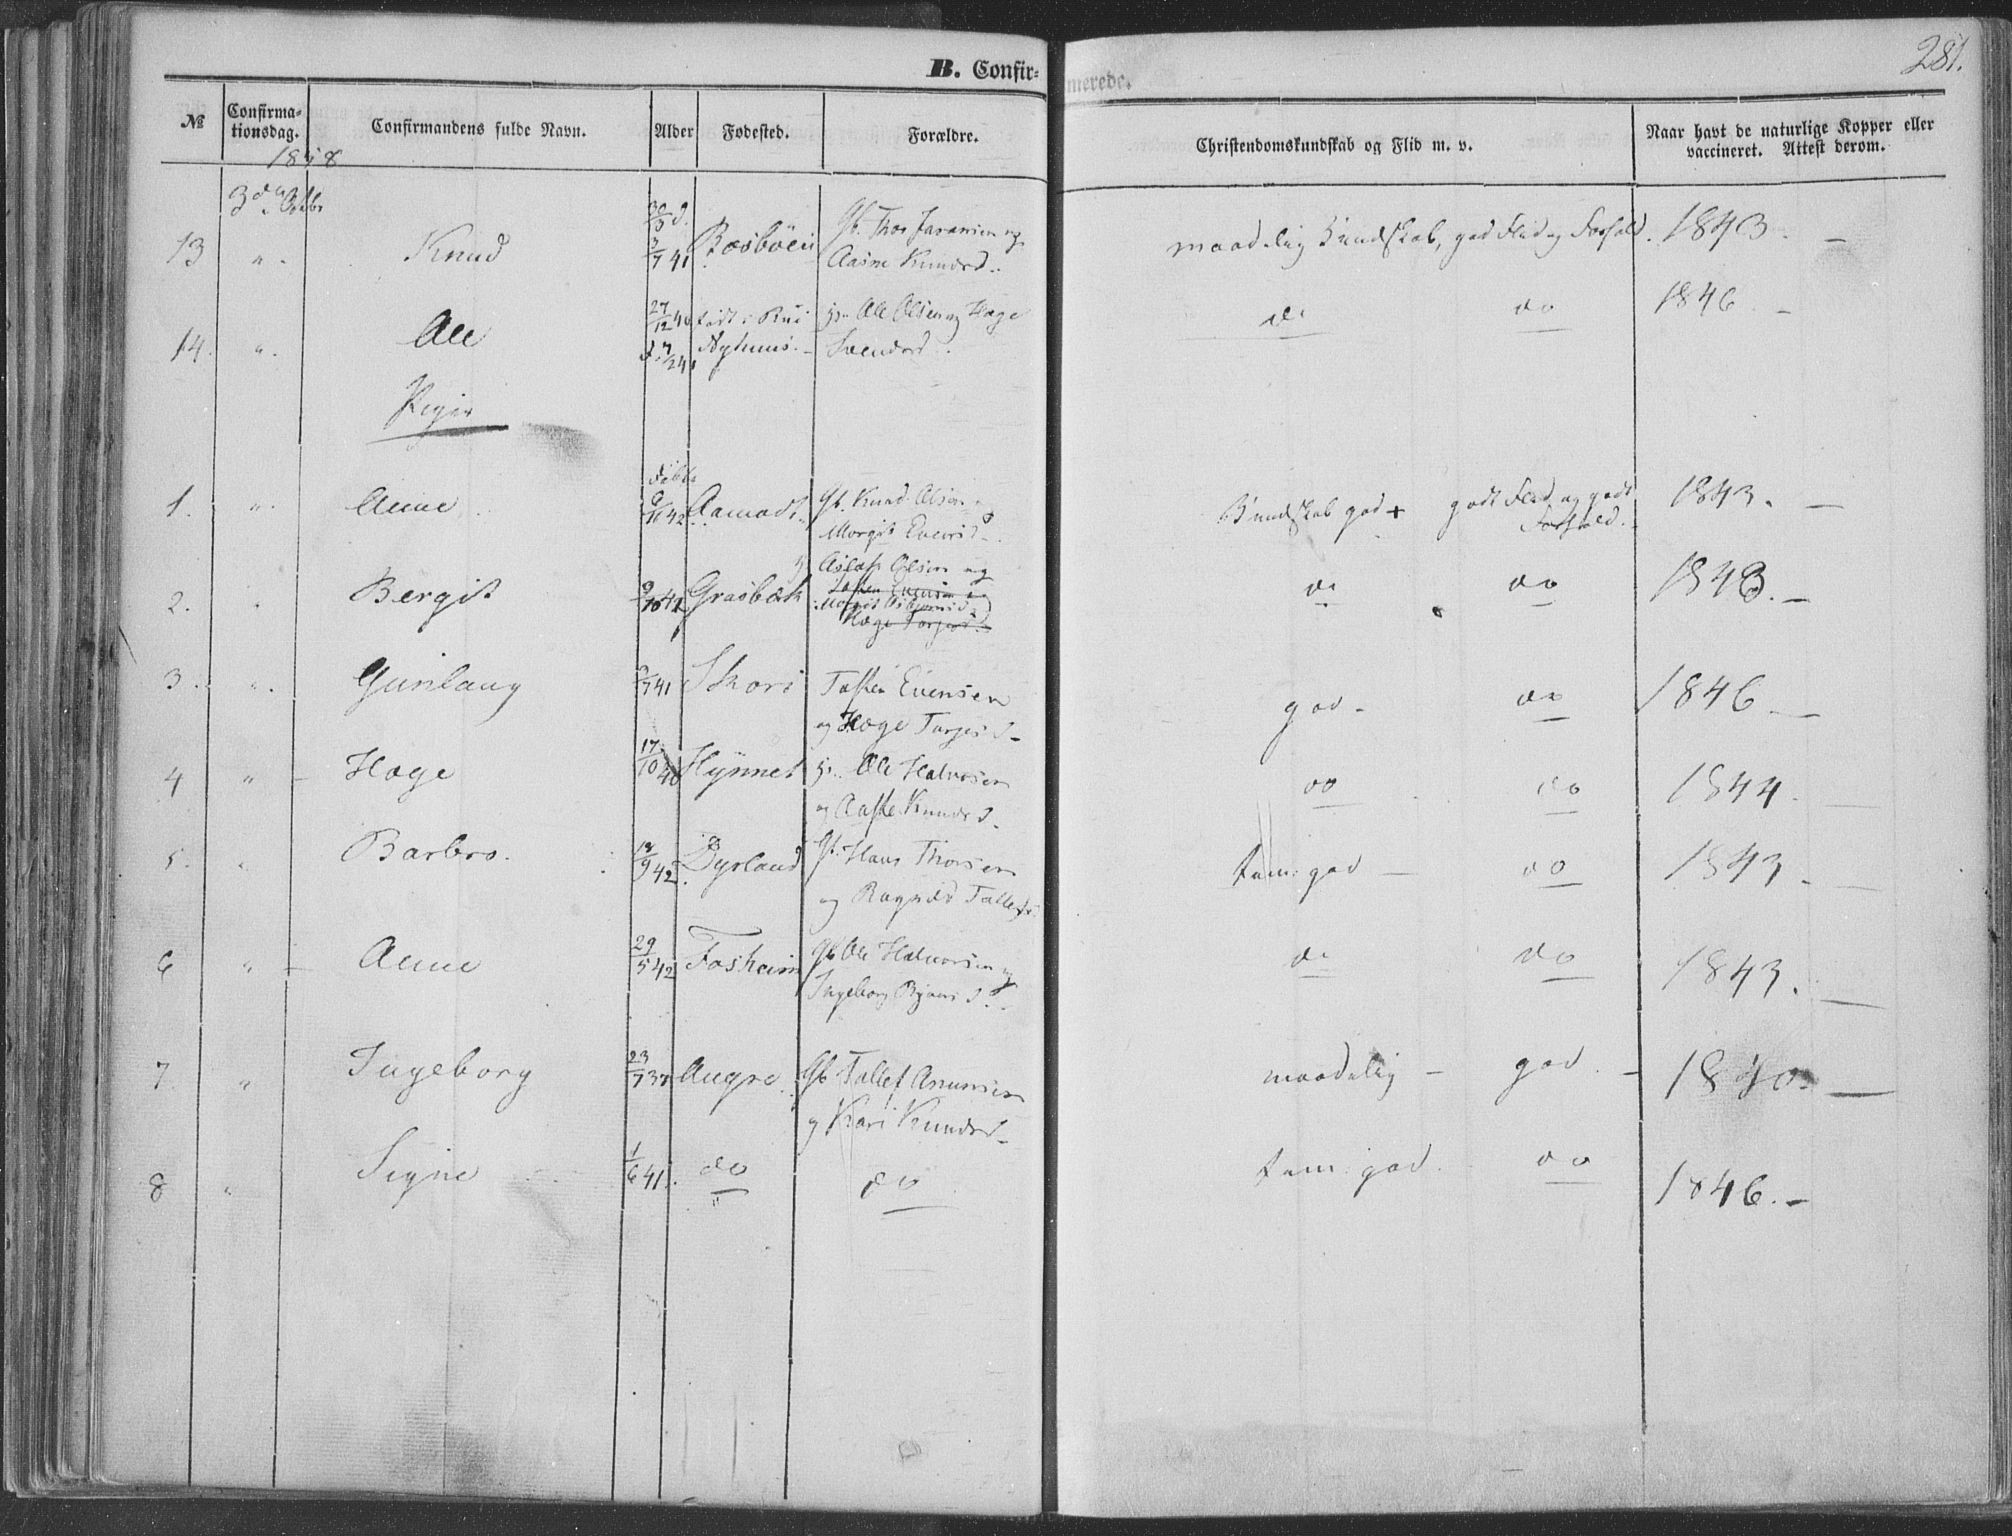 281.
B. Confirmerede.
№ Confirmationsdag. Confirmandens fulde Navn. Alder Fødested. Forældre. Christendomskundskab og Flid m. v. Naar havt de naturlige Kopper eller vaccineret. Attest derom.
1858
3die Octbr
13 " Knud 3/7 41 Bosbøen Gb. Thor og
Aasne Knudsd. maadelig Kundskab, god Flid og Forhold. 1843. —
14. " Ole 27/12 40 født i Ole Olsen og Hæge
Svendsd. do do 1846 —
Piger
1. " Anne 9/11 42 Aamodt. Gb. Knud Olsen og
Margit Evensd. Kundskab god + godt Flid og godt
Forhold. 1843. —
2. " Bergit 9/10 41 Grasbek Aslak Olsen og
Tosten Evensen og
Hæge Torjusd. do do 1843. —
3. " Gunlaug 3/7 41 Skori Tosten Evensen
og Hæge Torjusd. god - do 1846 —
4 " — Hæge 17/10 40 Hynnet Ole Halvorsen
og Aaste Knudsd. do do 1844. —
5. " Barbro. 19/9 42. Dyrland Gb. Hans Thorsen
og Ragnild Tallefsd. tem: god — do 1843. —
6 " — Anne 29/5 42 Fosheim Gb Ole Halvorsen og
Ingeborg d. do do 1843. —
7 " Ingeborg 23/7 37 Augre Gb Tallef Anunsen
og Kari Knudsd. maadelig — god. — 1840. —
8 " Signe 1/6 41. do do tem: god. do 1846. —